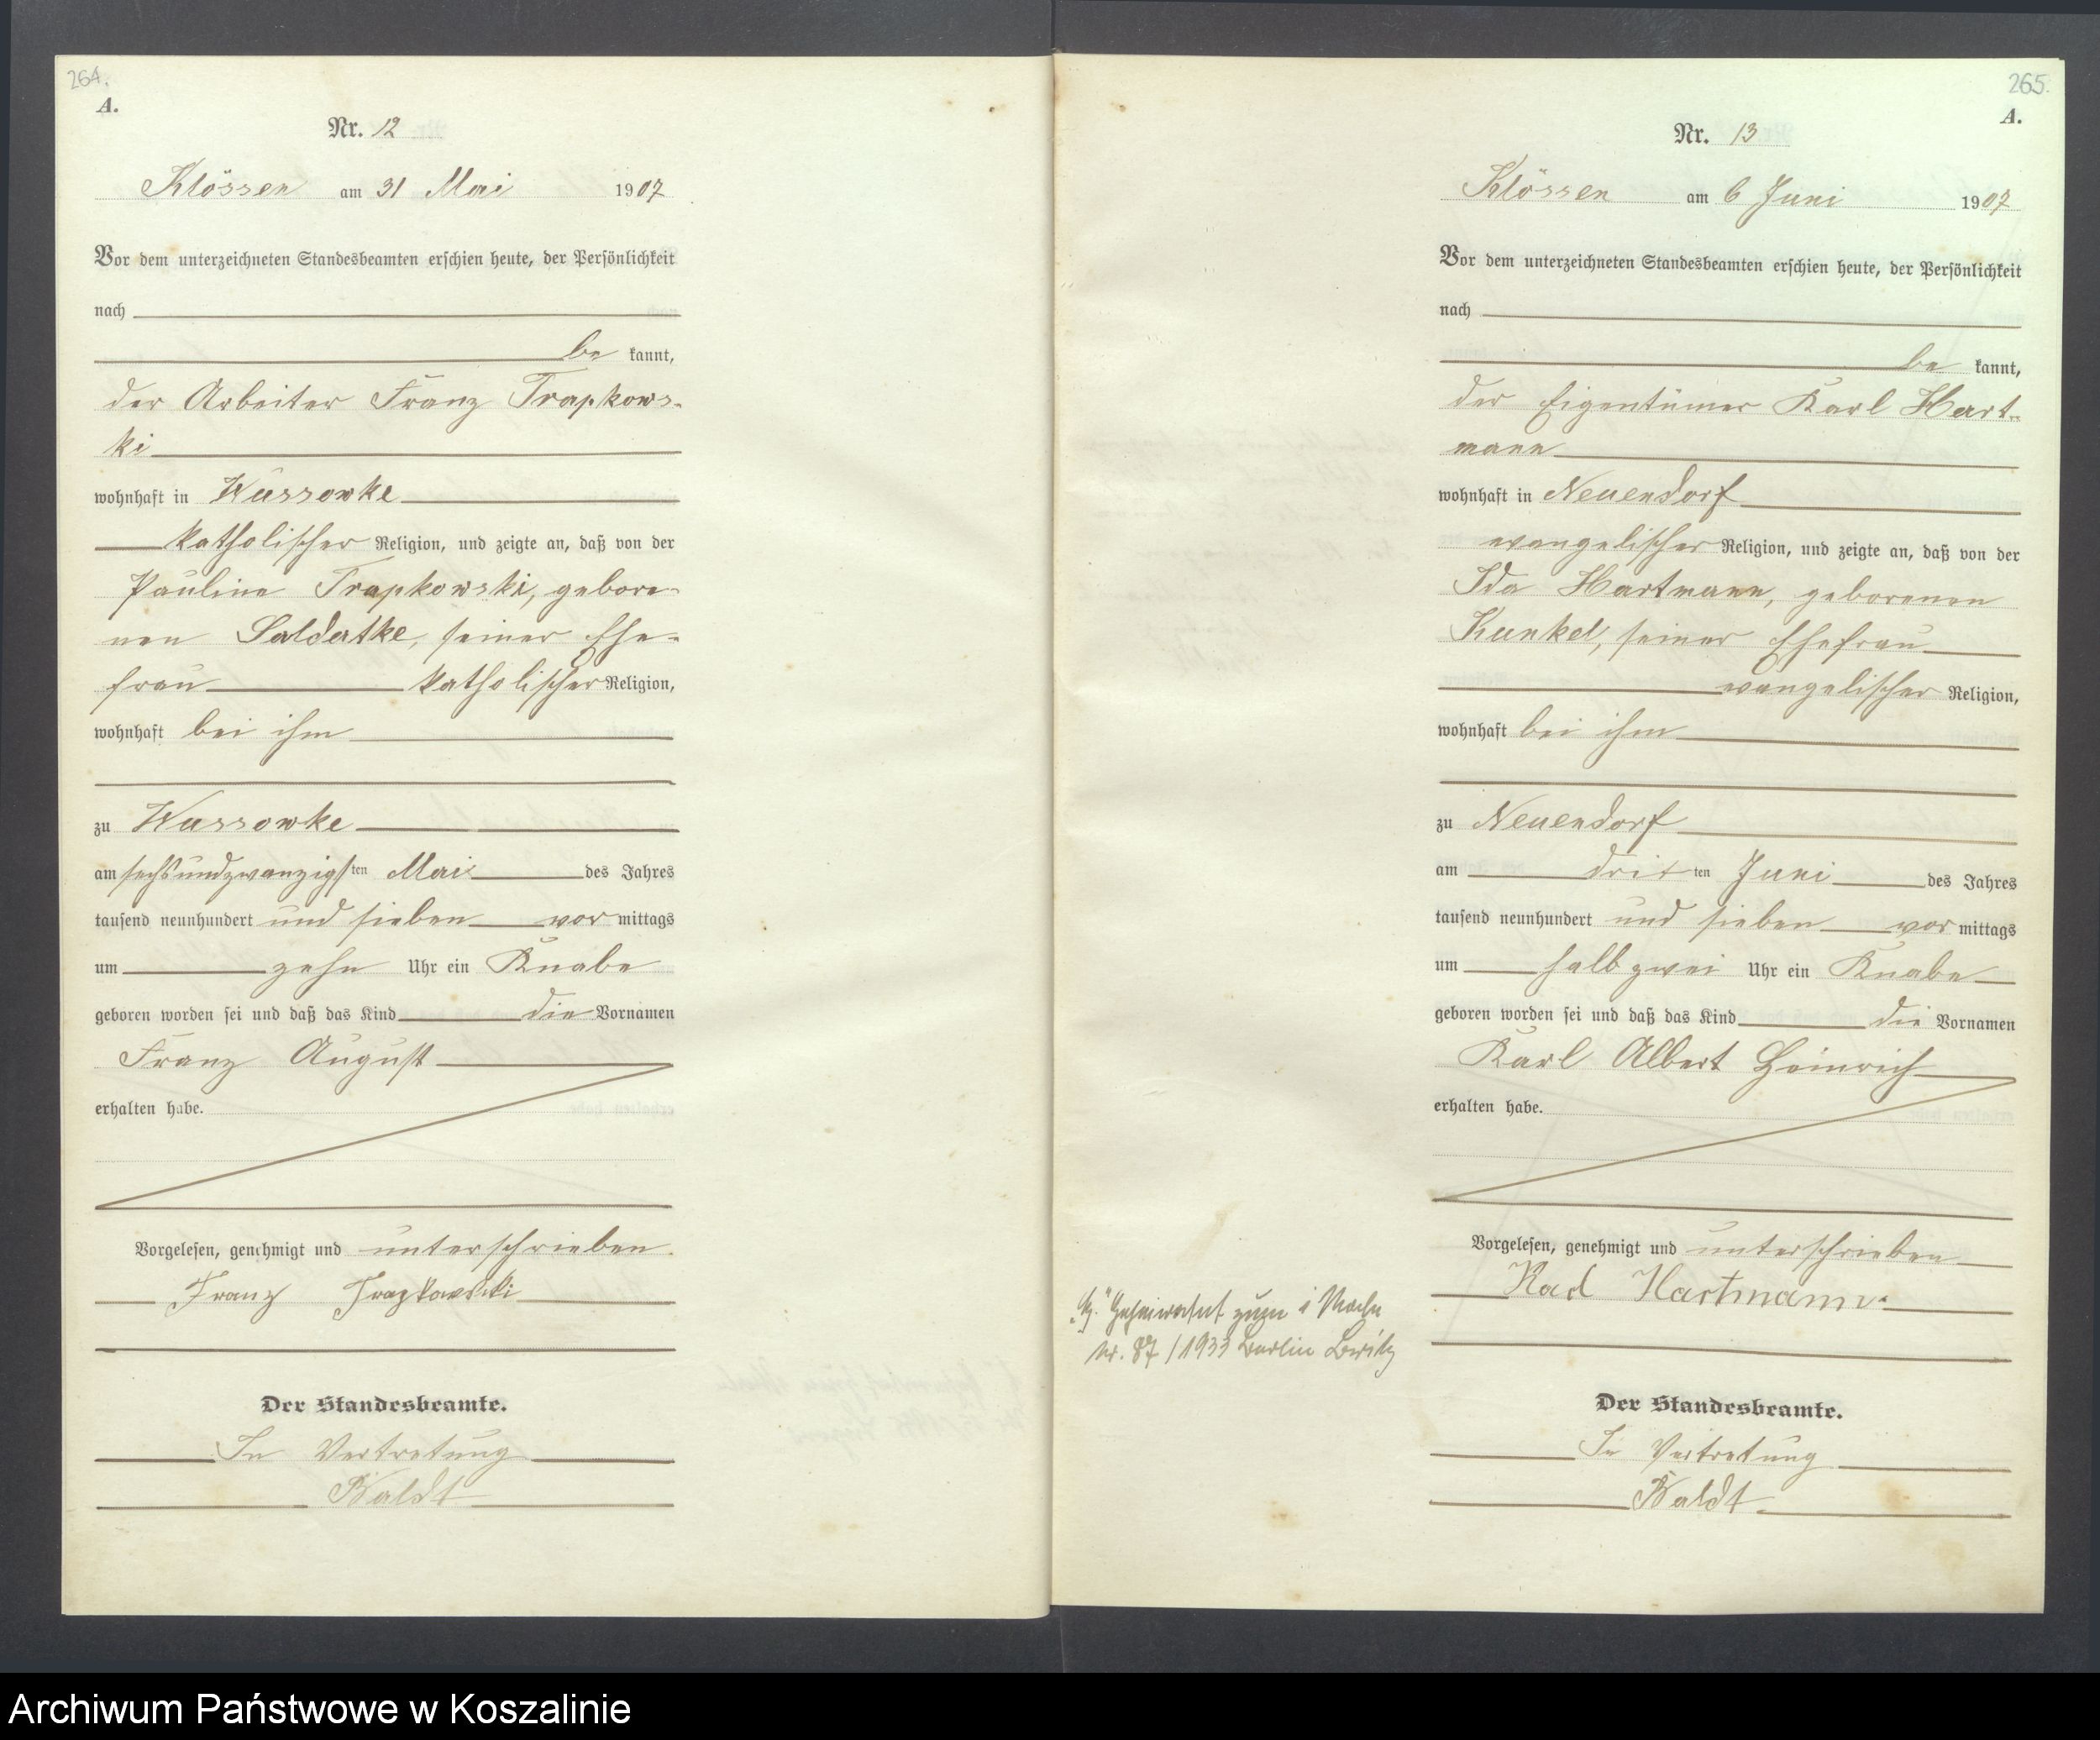 264.
A.
Nr. 12
Klössen am 31 Mai 1907
Vor dem unterzeichneten Standesbeamten erschien heute, der Persönlichkeit
nach
be kannt,
der Arbeiter Franz Trapkows-
ki
wohnhaft in Wussowke
katholischer Religion, und zeigte an, daß von der
Pauline Trapkowski, gebore-
nen Saldatke, seiner Ehe-
frau katholischer Religion,
wohnhaft bei ihm
zu Wussowke
am sechsundzwanzigsten Mai des Jahres
tausend neunhundert und sieben vor mittags
um zehn Uhr ein Knabe
geboren worden sei und daß das Kind die Vornamen
Franz August
erhalten habe.
Vorgelesen, genehmigt und unterschrieben.
Franz Trapkowski
Der Standesbeamte.
In Vertretung
Baldt
265.
A.
Nr. 13
Klössen am 6 Juni 1907
Vor dem unterzeichneten Standesbeamten erschien heute, der Persönlichkeit
nach
be kannt,
der Eigentümer Karl Hart-
mann
wohnhaft in Neuendorf
evangelischer Religion, und zeigte an, daß von der
Ida Hartmann, geborenen
Kunkel, seiner Ehefrau
evangelischer Religion,
wohnhaft bei ihm
zu Neuendorf
am dritten Juni des Jahres
tausend neunhundert und sieben vor mittags
um halb zwei Uhr ein Knabe
geboren worden sei und daß das Kind die Vornamen
Karl Albert Heinrich
erhalten habe.
Vorgelesen, genehmigt und unterschrieben
Karl Hartmann.
Geheiratet zum
Nr. 87/1933 Berlin
Der Standesbeamte.
In Vertretung
Baldt
Archiwum Państwowe w Koszalinie